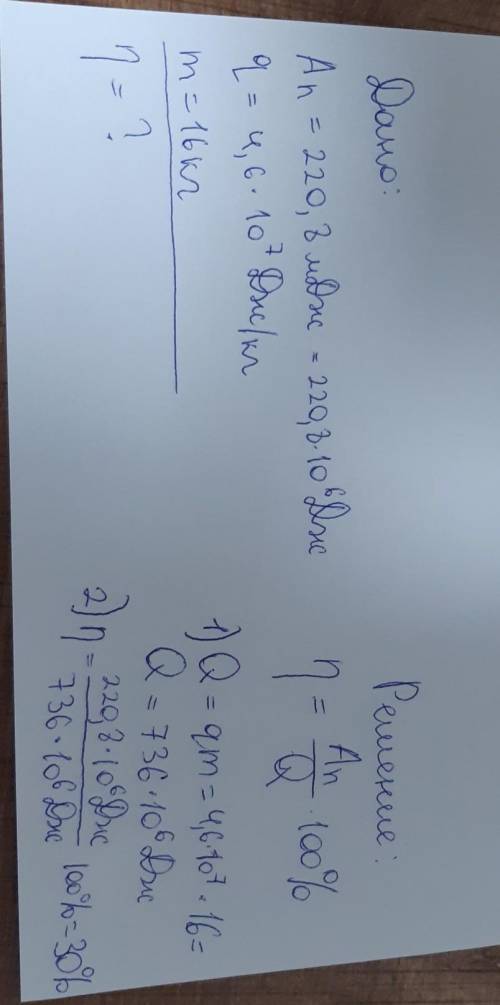 Дано:
Ап = 220,8 мДж = 220,8·10⁶ Дж
q = 4,6·10⁷ Дж/кг
m = 16 кг
η = ?
Решение:
η = Ап/Q · 100%
1) Q = qm = 4,6·10⁷·16 =
Q = 736·10⁶ Дж
2) η = 220,8·10⁶ Дж / 736·10⁶ Дж 100% = 30%